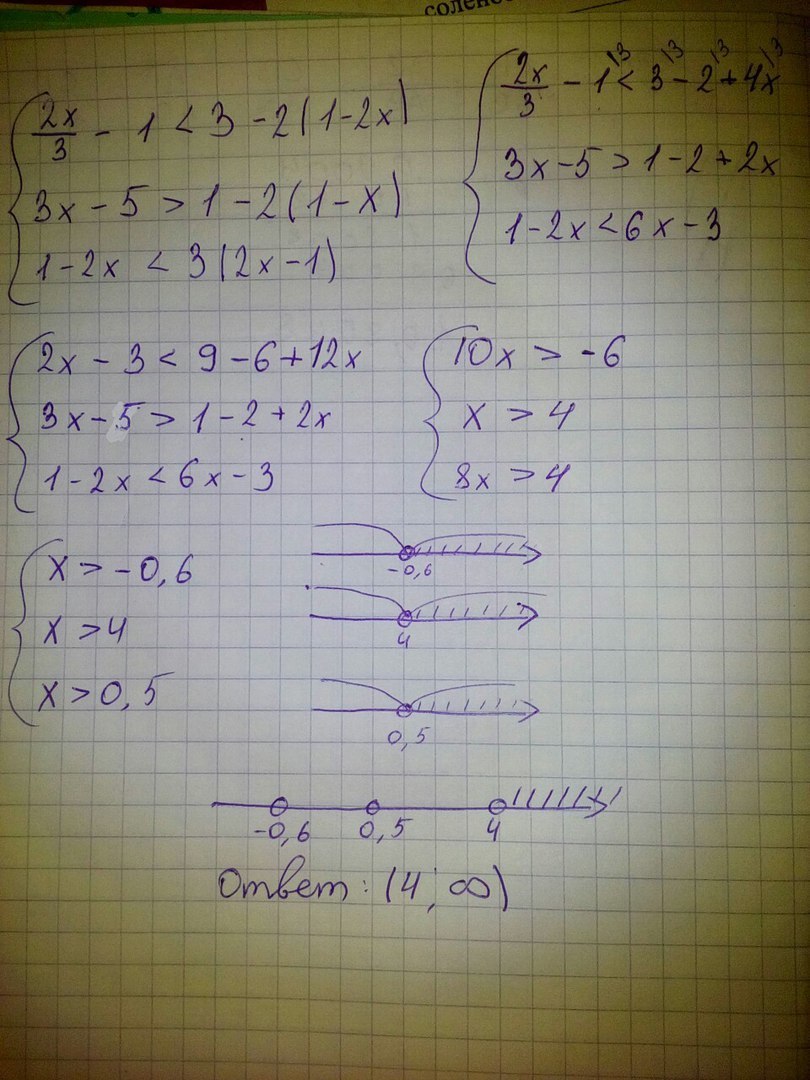 солено
2x/3 - 1 < 3 - 2(1-2x)
3x - 5 > 1 - 2(1-x)
1-2x < 3(2x-1)
2x/3 - 1\3 < 3\3 - 2\3 + 4x\3
3x-5 > 1-2+2x
1-2x < 6x-3
2x - 3 < 9 - 6 + 12x
3x-5 > 1-2+2x
1-2x < 6x-3
10x > -6
x > 4
8x > 4
x > -0,6
x > 4
x > 0,5
-0,6
4
0,5
-0,6 0,5 4
Ответ: (4; ∞)